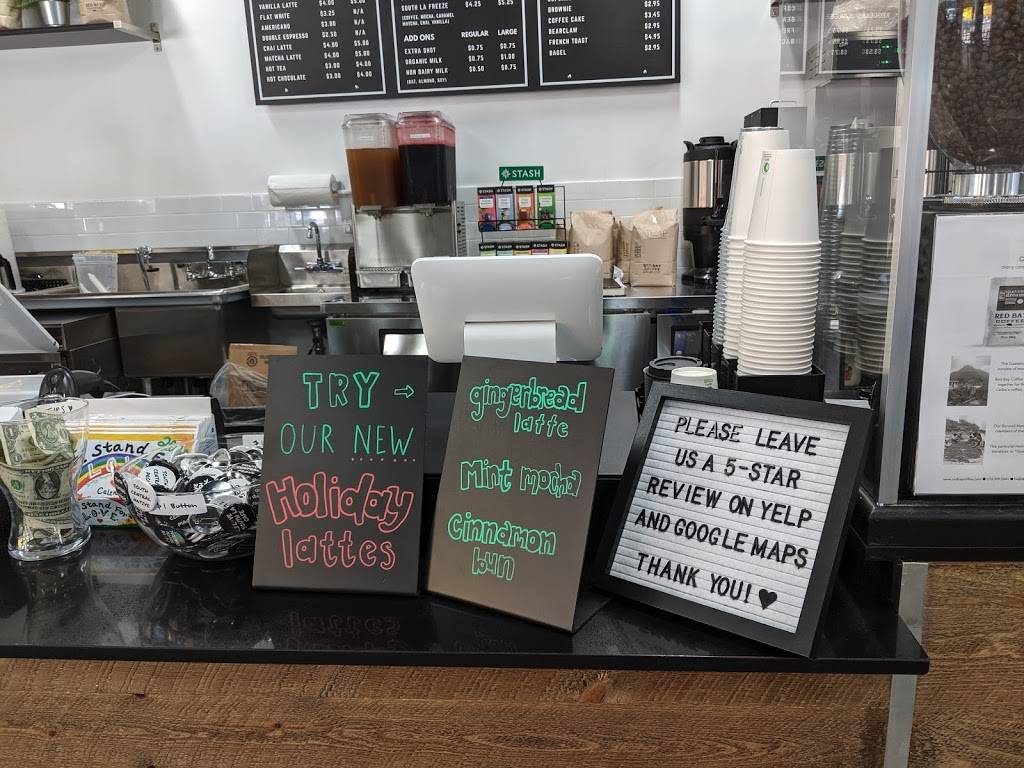 VANILLA LATTE $4.00 $5.00
FLAT WHITE $3.25 N/A
AMERICANO $3.00 N/A
DOUBLE ESPRESSO $2.50 N/A
CHAI LATTE $4.00 $5.00
MATCHA LATTE $4.00 $5.00
HOT TEA $3.00 $4.00
HOT CHOCOLATE $3.00 $4.00
SOUTH LA FREEZE $4.25 $5.25
(COFFEE, MOCHA, CARAMEL
MATCHA, CHAI, VANILLA)
ADD ONS REGULAR LARGE
EXTRA SHOT $0.75 $0.75
ORGANIC MILK $0.75 $1.00
NON DAIRY MILK $0.50 $0.75
(OAT, ALMOND, SOY)
BROWNIE $2.95
COFFEE CAKE $3.45
BEARCLAW $2.95
FRENCH TOAST $4.95
BAGEL $2.95
STASH
TRY →
OUR NEW
Holiday
lattes
gingerbread
latte
Mint mocha
Cinnamon
bun
PLEASE LEAVE
US A 5-STAR
REVIEW ON YELP
AND GOOGLE MAPS
THANK YOU! ♥
stand
Stand For
LOVE
SOUTH
CENTRAL
NATIVE
1 Button
RED BAY
COFFEE